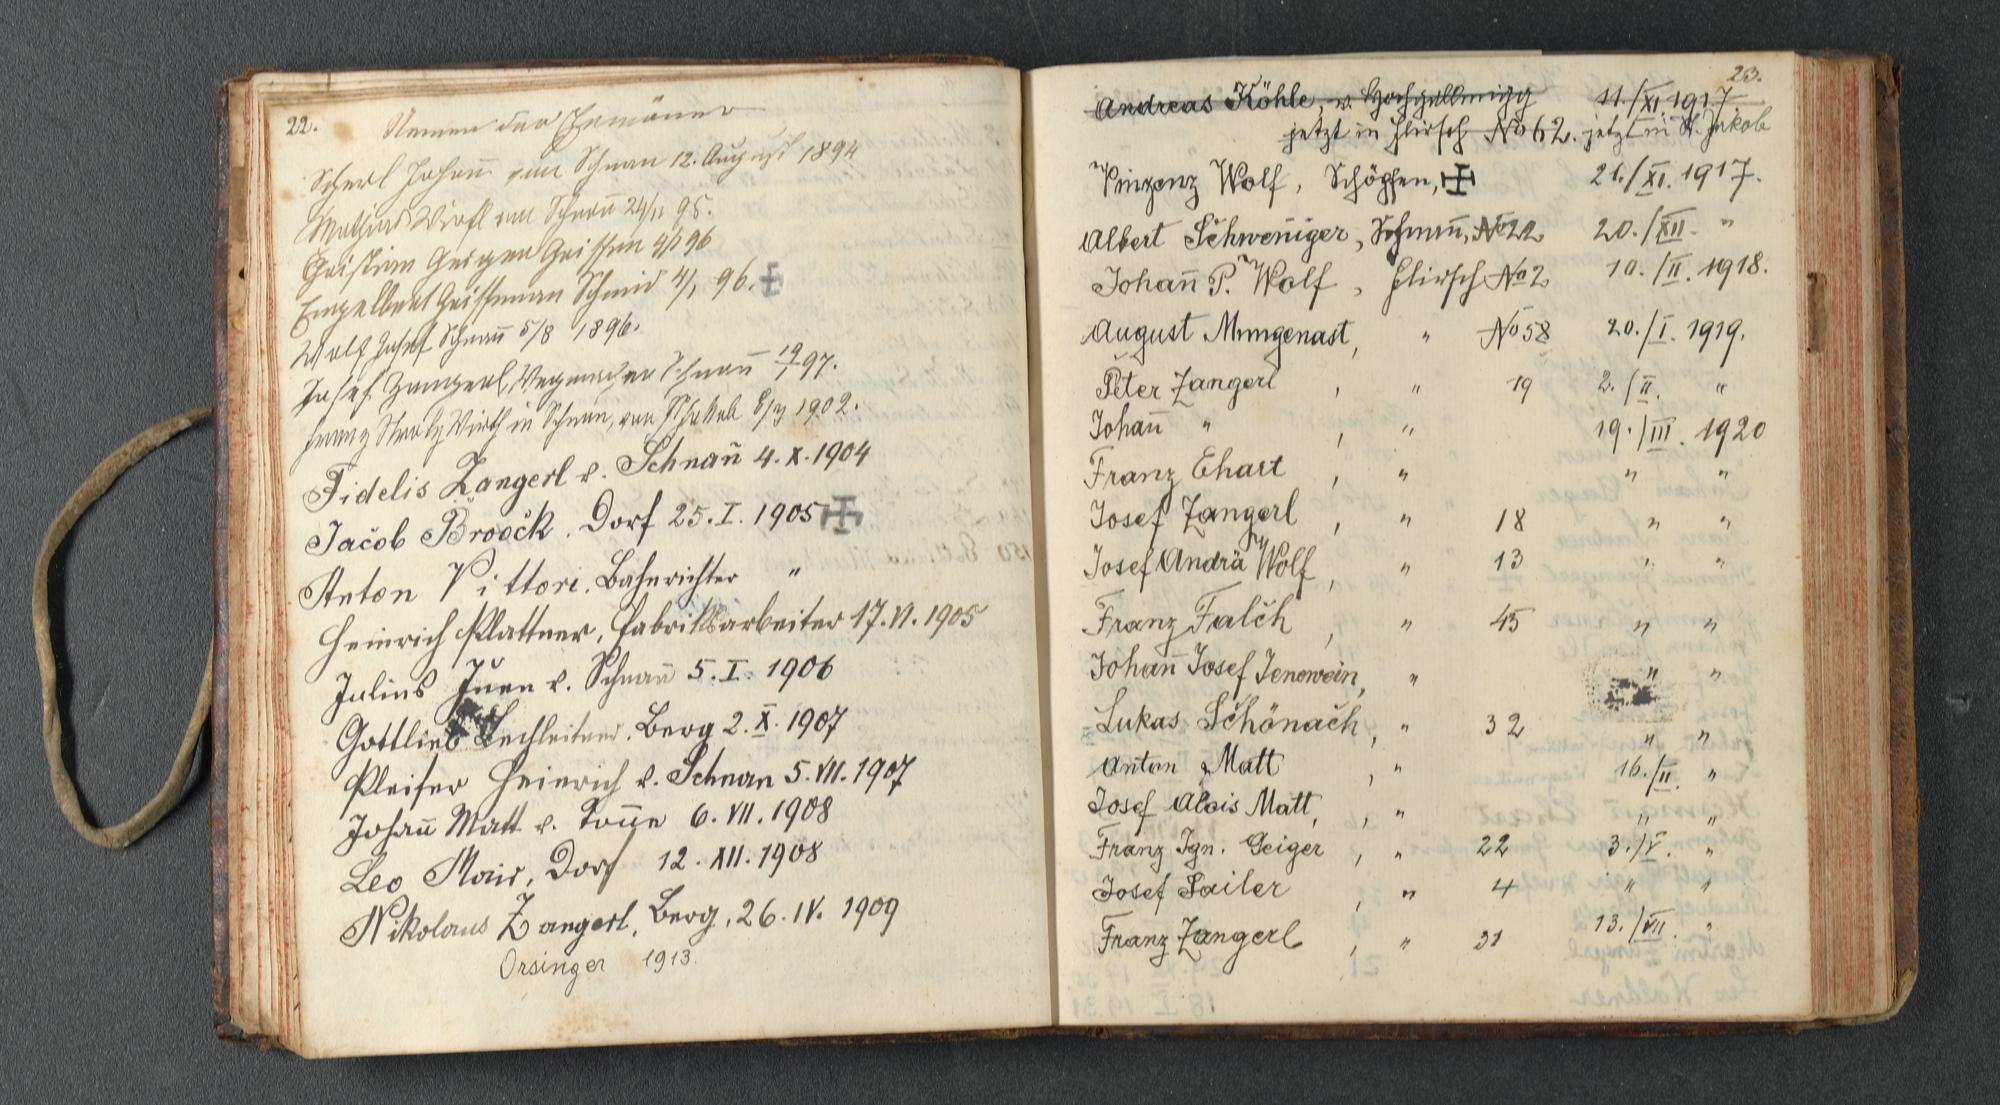 22.
Namen der Ehemänner
Scherl Johann von Schnan 12. August 1894
Mathias Wolf von Schnan̄ 24/11 95.
Christian Geiger 4/2 96
Engelbert Geissman Schmid 4/1 96. ✠
Wolf Josef Schnan̄ 5/8 1896.
Josef Zangerl, Wegmacher Schnan̄ 19/1 97.
Franz Wirth in Schnan, von St. Jakob 1902.
Fidelis Zangerl v. Schnan̄ 4.X.1904
Jacob Broock. Dorf 25.I. 1905 ✠
Anton Vittori. Bahnrichter "
Heinrich Plattner, Fabriksarbeiter 17.VI.1905
Julius Juen v. Schnan̄ 5.I. 1906
Gottlieb Lechleitner. Berg 2.X.1907
Pleifer Heinrich v. Schnan 5.VII.1907
Johan̄ Matt v. 6.VII.1908
Leo Mair, Dorf 12.XII.1908
Nikolaus Zangerl, Berg, 26.IV. 1909
Orsinger 1913.
23.
Andreas Köhle, v. Hochgallmigg 11./XI.1917.
jetzt in Flirsch No 62. jetzt in St. Jakob
Vinzenz Wolf, Schöpfen, ✠ 21./XI.1917.
Albert Schweniger, Schnan̄, No 22 20./XII. "
Johan̄ P. Wolf, Flirsch No 2 10./II. 1918.
August Mungenast, " No 58 20./I. 1919.
Peter Zangerl, " 19 2./II. "
Johan̄ ", " 19./III. 1920
Franz Ehart, " " "
Josef Zangerl, " 18 " "
Josef Andrä Wolf, " 13 " "
Franz Falch, " 45 " "
Johan̄ Josef Jenewein, " " "
Lukas Schönach, " 32 " "
Anton Matt, " 16./II. "
Josef Alois Matt, , " " "
Franz Ign. Geiger, " 22 3./V. "
Josef Sailer, " 4 " "
Franz Zangerl, " 31 13./VII. "